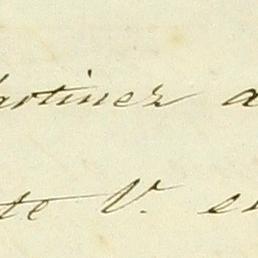 artinez a
te V. en